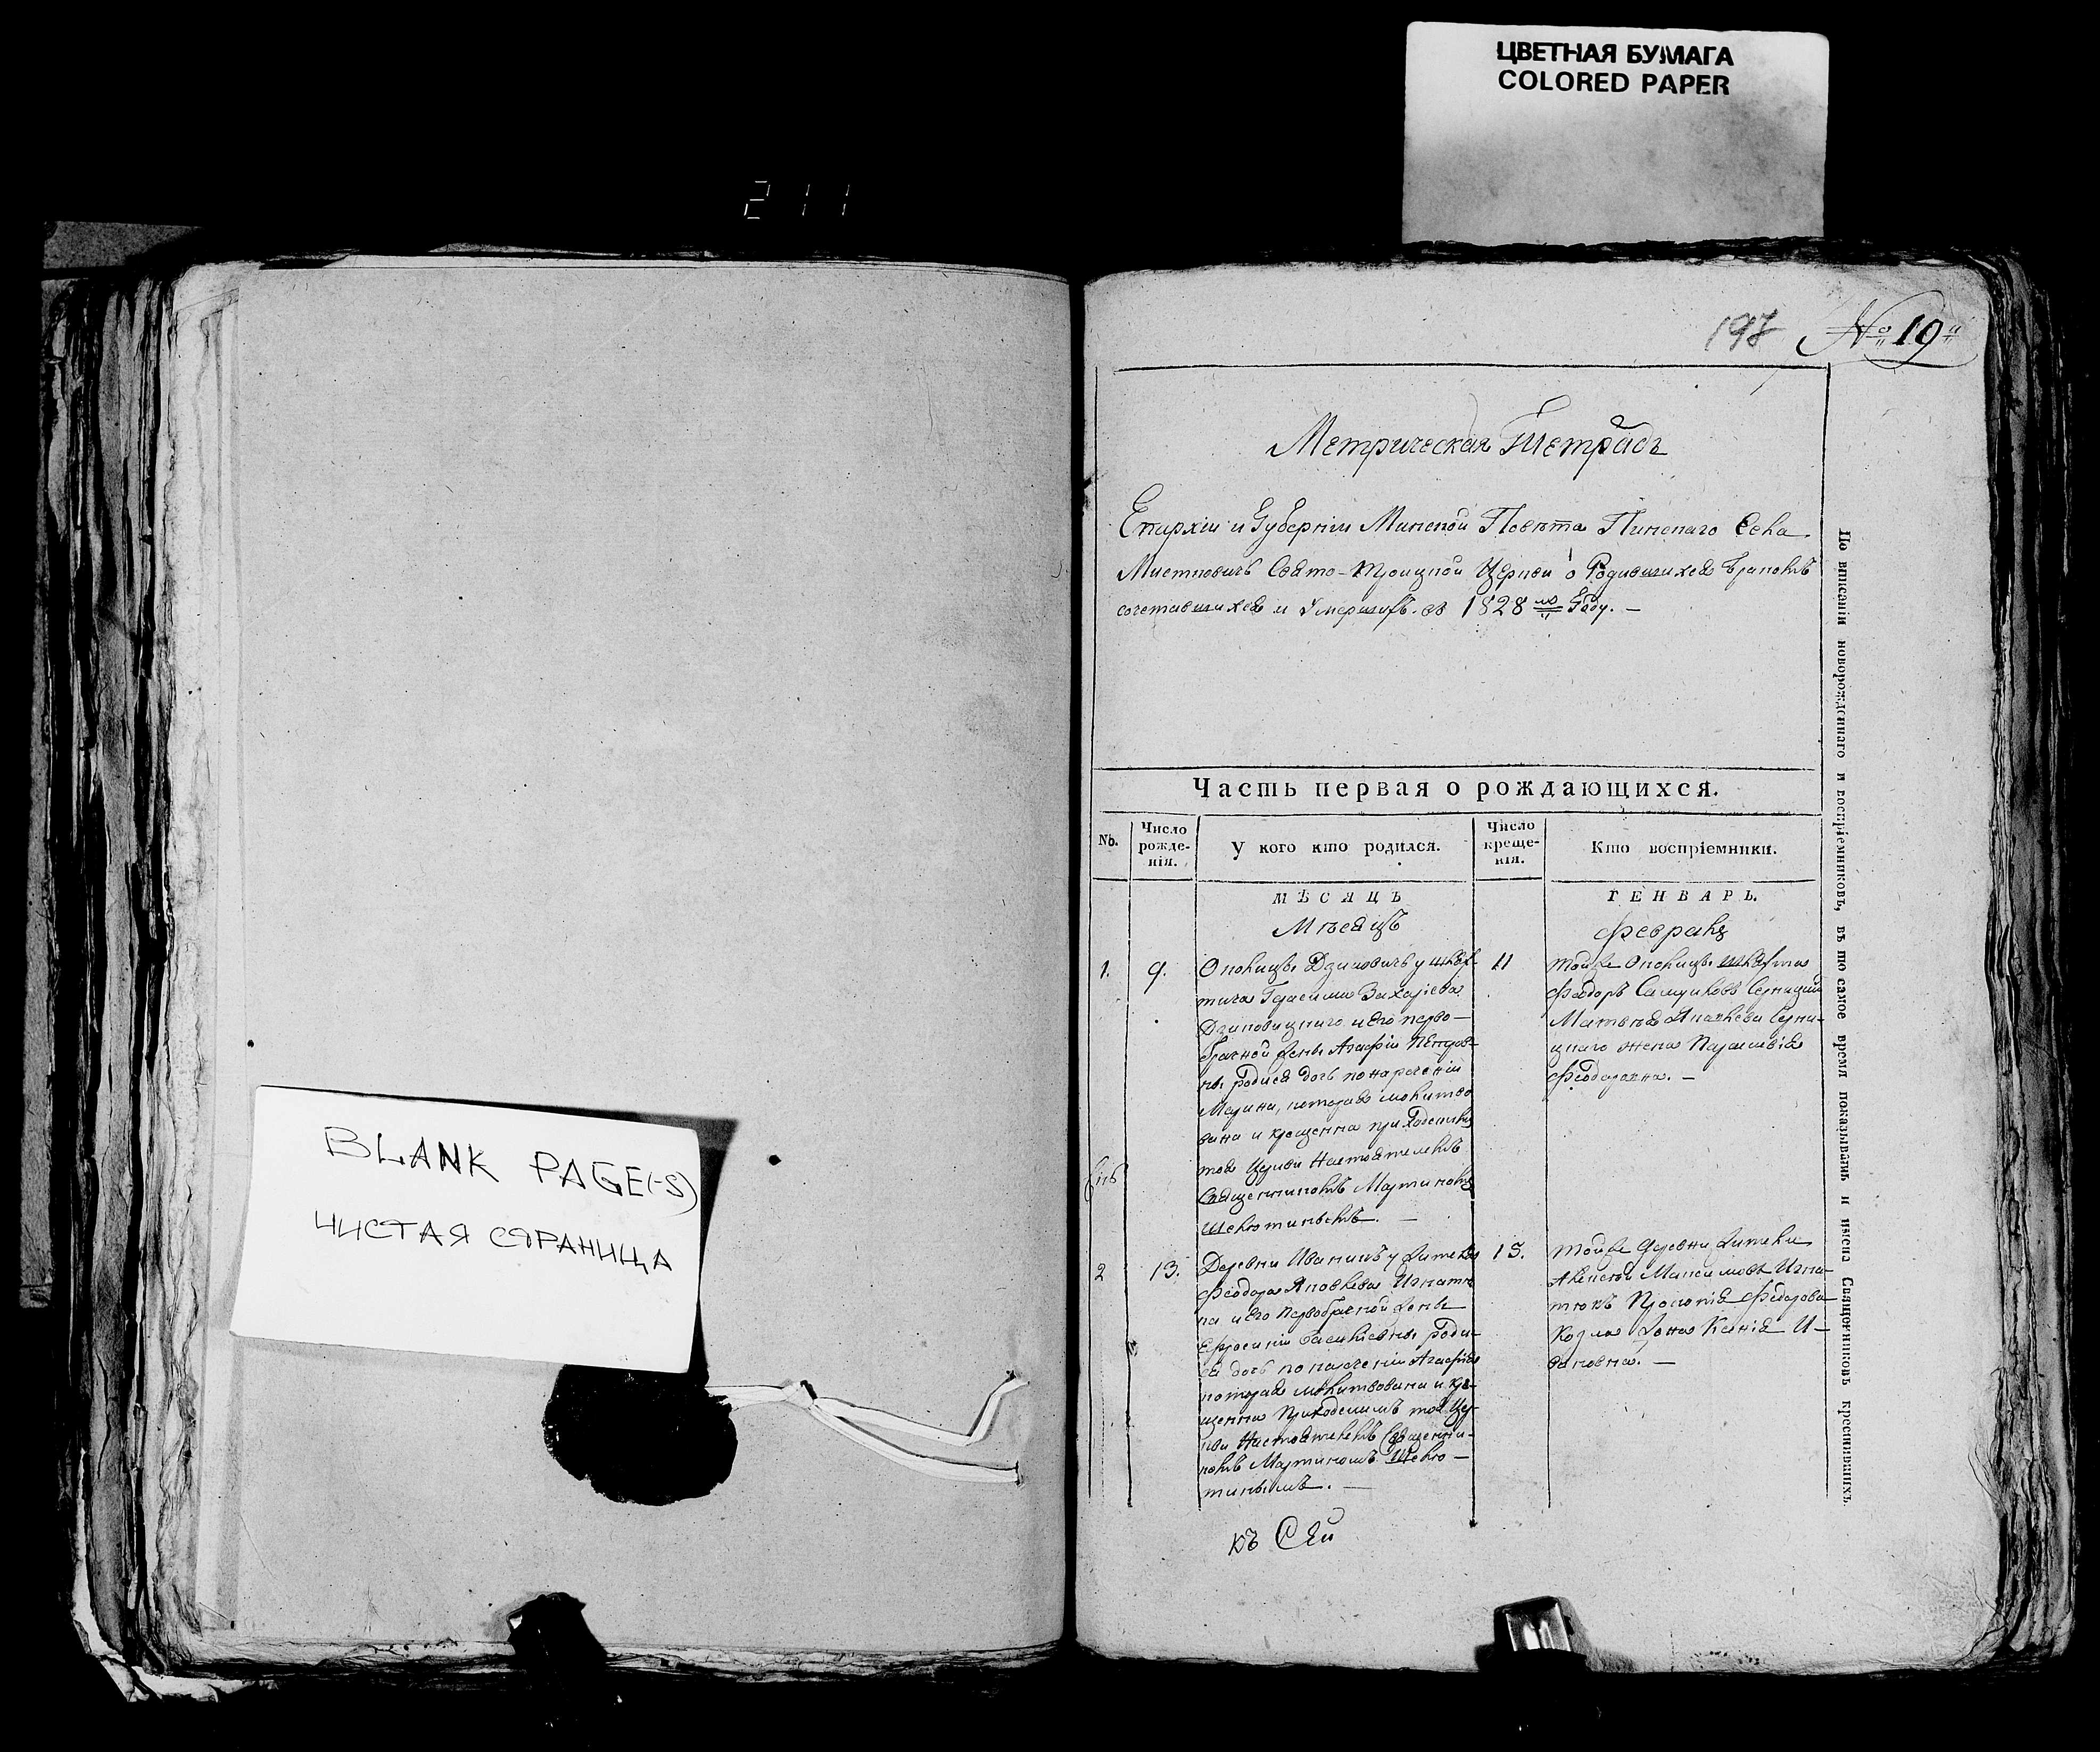 ЦВЕТНАЯ БУМАГА
COLORED PAPER
211
BLANK PAGE(-S)
ЧИСТАЯ СТРАНИЦА
197 № 19
Метрическая Тетрадь
Епархіи и Губерніи Минской Повѣта Пинскаго Села
Свято-Троицкой Церкви о Родившихся Бракомъ
сочетавшихся и Умершихъ. въ 1828 мъ Году. —
Часть первая о рождающихся.
No.
Число рожде-нія.
У кого кто родился.
Число креще-нія.
Кто воспріемники.
МѢСЯЦЪ
ГЕНВАРЬ.
Мѣсяцъ
Февраль
1.
9.
Околицы Дзиковичъ у шлях-
тича Герасима Захаріева
Дзиковицкаго и его перво-
брачной жены Агафіи Петров-
ны родися дочь по нареченіи
Марина, которая молитво
вана и крещенна
тоя Церкви Настоятелемъ
Священникомъ Мартиномъ
11
Тойже Околицы шляхта
Феодоръ Серницкій
Матвѣя Серни-
цкаго жена Параскевія
Феодоровна. —
2
13.
Деревни у жителя
Феодора Яковлева Игнатю
ка и его Первобрачной жены
Ефросиніи Васильевны роди-
ся дочь по нареченіи Агафія
которая молитвована и кре-
щенна тоя Цер-
кви Настоятелемъ Священни-
комъ Мартиномъ
15.
Тойже Деревни жители
Алексѣй Максимовъ Игна-
тюкъ Феодорова
Козла жена Ксенія И-
вановна. —
къ Сей
По вписаніи новорожденнаго и воспріемниковъ, въ то самое время показывать и имена Священниковъ крестившихъ.